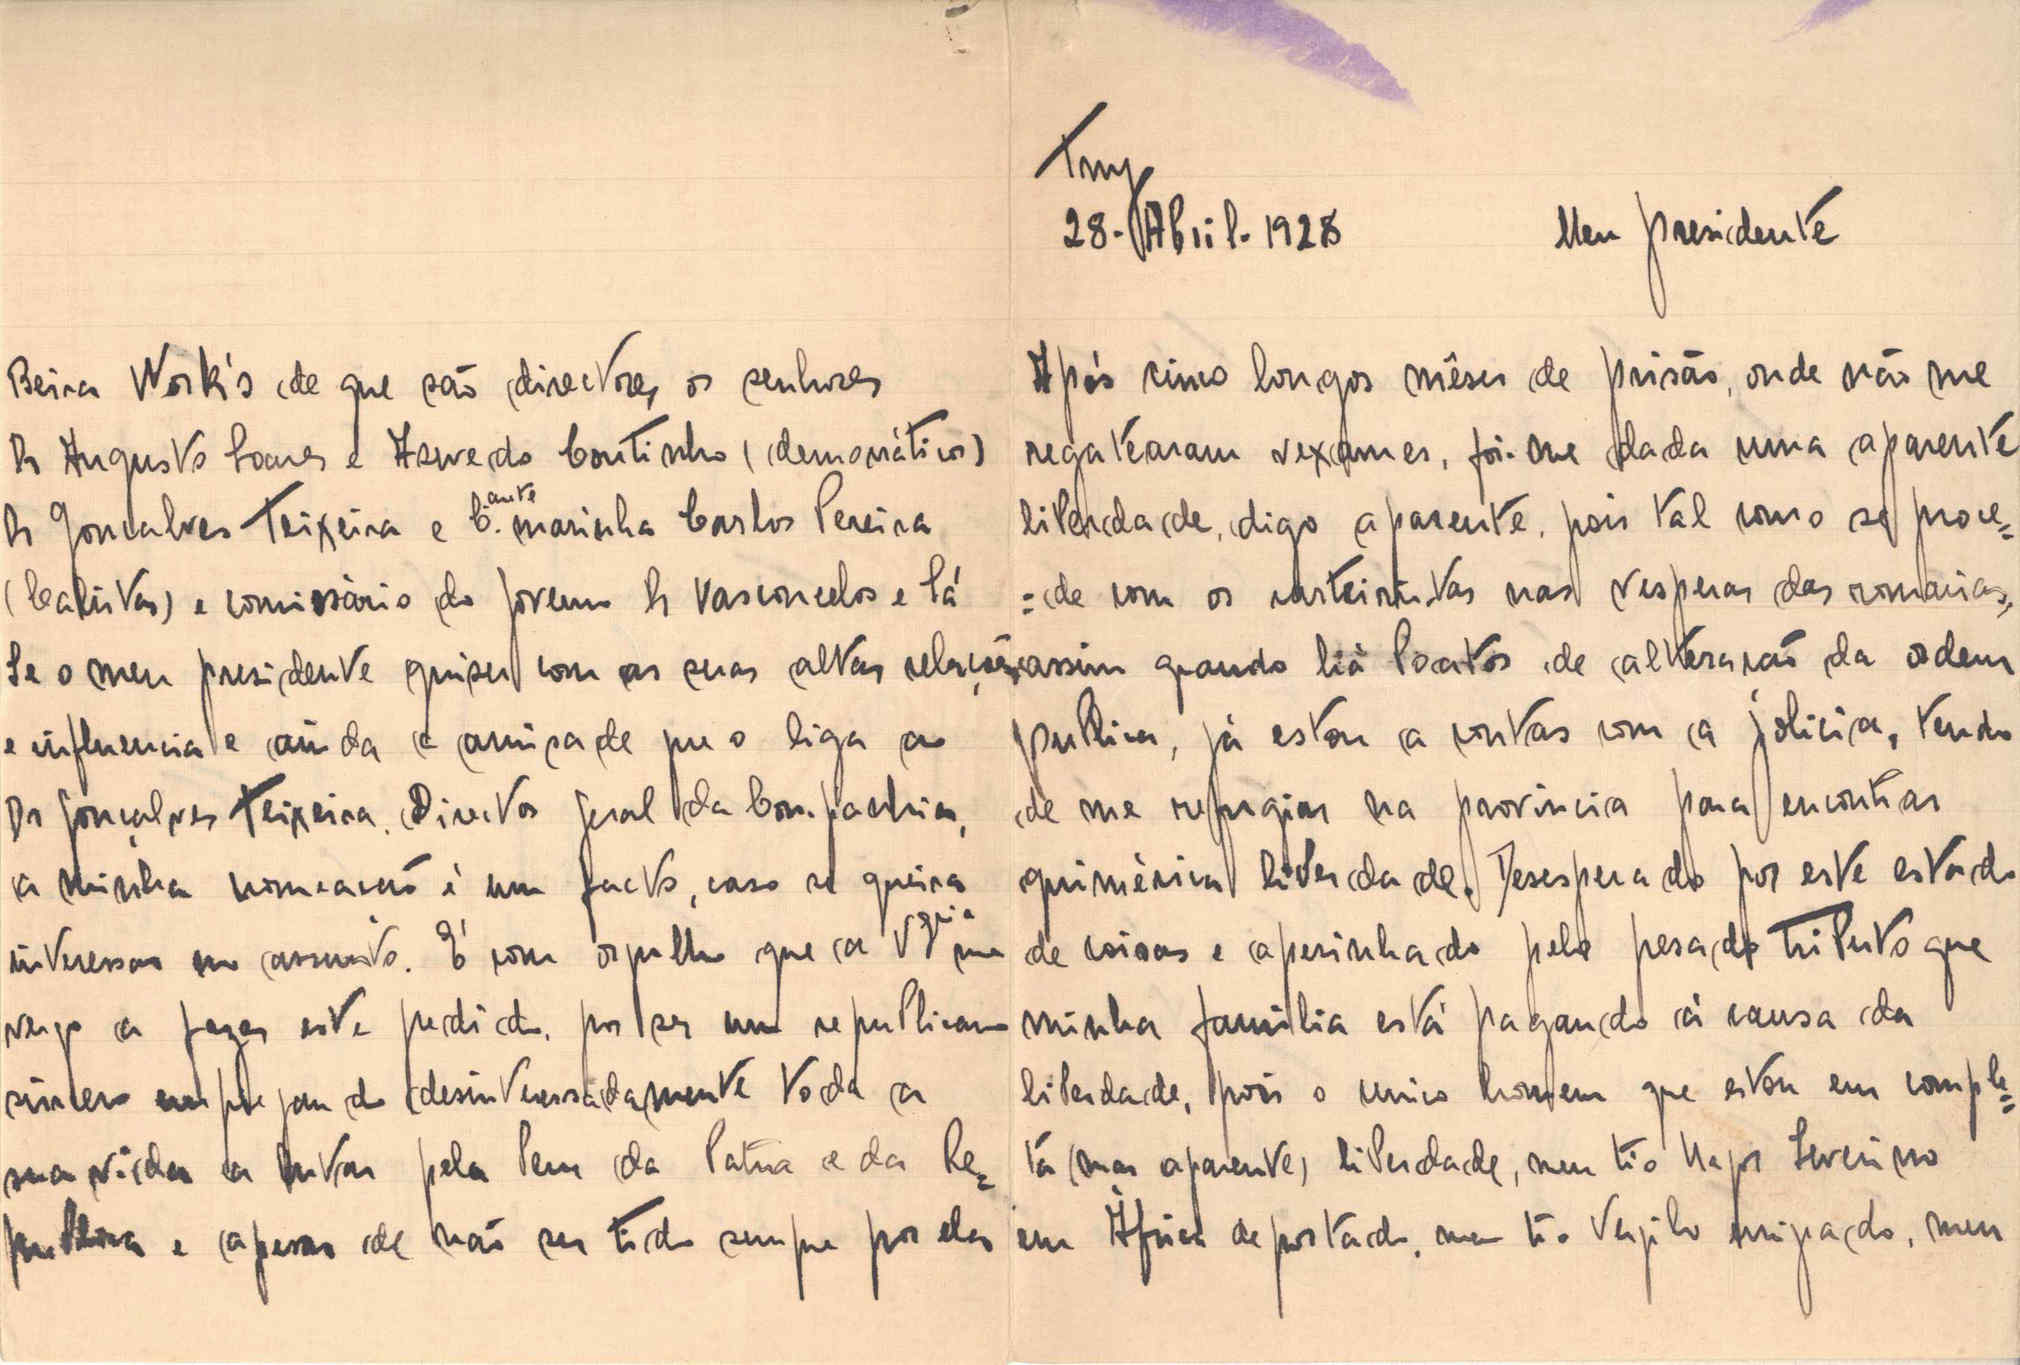 Tuy
28-Abril-1928
Meu presidente
Após cinco longos mêses de prisão, onde não me
regatearam vexames, foi-me dada uma aparente
liberdade, digo aparente, pois tal como se proce=
=de com os carteiristas nas vesperas das romarias,
assim quando há boatos de alteração da ordem
publica, já estou a contas com a policia, tendo
de me refugiar na provincia para encontrar
quimèrica liberdade. Desesperado por este estado
de coisas e apesinhado pelo pesado tributo que
minha familia está pagando á causa da
liberdade, pois o unico homem que estou em comple=
ta (mas aparente) liberdade, meu tio Major Severino
em Àfrica deportado, meu tio Vergilio emigrado, meu
Beira Work's de que são directores os senhores
Dr Augusto Soares e Azevedo Coutinho (democráticos)
Dr Gonçalves Teixeira e C.ante marinha Carlos Pereira
(Calistas) e comissário do governo Dr Vasconcelos e Sá
Se o meu presidente quiser com as suas altas relações
e influencia e ainda a amisade que o liga ao
Dr Gonçalves Teixeira, Director Geral da Companhia,
a minha nomeação é um facto, caso se queira
interessar no assunto. É com orgulho que a
venho a fazer este pedido, por ser um republicano
sincero empregando desinteressadamente toda a
sua vida a lutar pelo bem da Patria e da Re=
publica e apesar de não ser tido sempre por elas